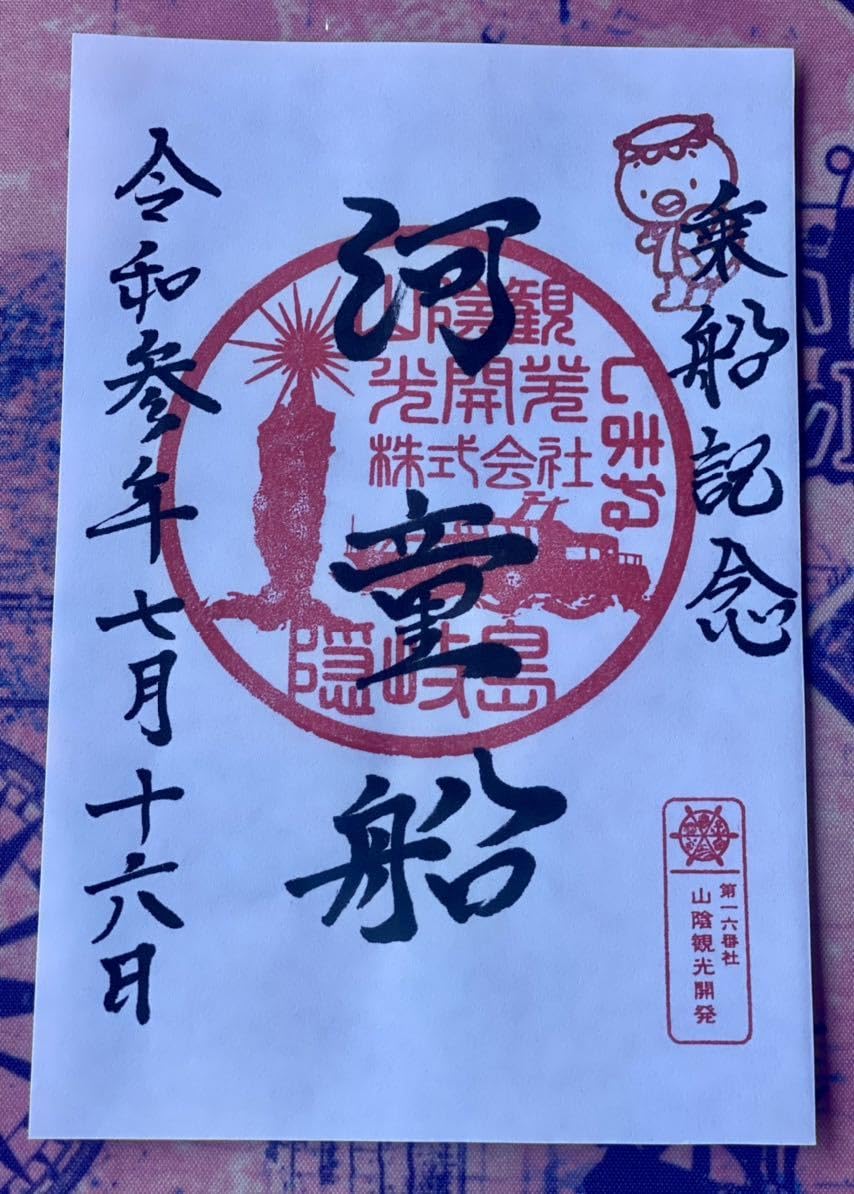 乗船記念
河童船
令和参年七月十六日
山陰観
光開発
株式会社
隠岐島
第一六番社
山陰観光開発